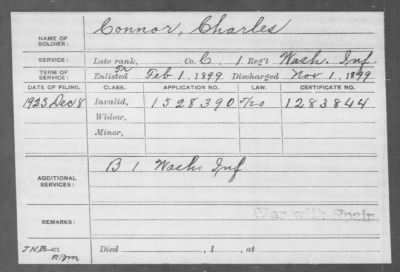 NAME OF SOLDIER: Connor, Charles
SERVICE: Late rank, Co. C, 1 Reg't Wash. Inf.
TERM OF SERVICE: Enlisted Feb 1, 1899 Discharged Nov 1, 1899
DATE OF FILING. CLASS. APPLICATION NO. LAW. CERTIFICATE NO.
1923 Dec 8 Invalid, 1528390 1283844
Widow,
Minor,
ADDITIONAL SERVICES: B 1 Wash. Inf
REMARKS: War with Spain
Died , 1 , at